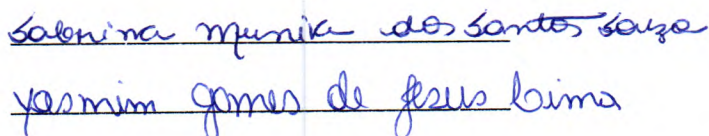 Sabrina Munik dos Santos Souza
Yasmim Gomes de Jesus Lima